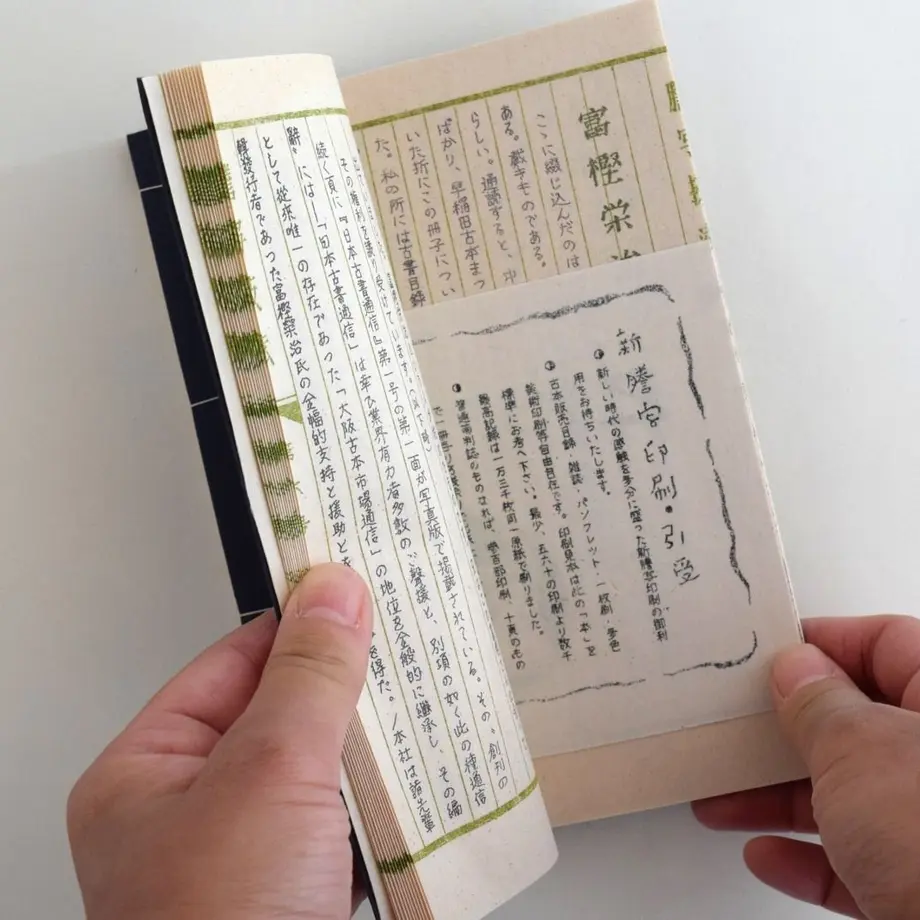 富樫栄治
こゝに綴じ込んだのは
ある。戴きものである。
らしい。通読すると、中
ばかり、早稲田古本まつ
いた折にこの冊子につい
た。私の所には古書目録
新謄写印刷・引受
新しい時代の感触を多分に盛った新謄写印刷の御利
用をお待ちいたします。
古本販売目録・雑誌・パンフレット・一枚刷・多色
美術印刷等自由自在です。印刷見本は此の「本」を
標準にお考へ下さい。最少、五六十の印刷より数千
最高記録は一万三千枚同一原紙で刷りました。
普通菊判誌のものなれば、壱百部印刷、十頁のもの
その権利を譲り受けています。
続く頁に『日本古書通信』第一号の第一面が写真版で掲載されている。その〝創刊の
辞〟には―「日本古書通信」は幸ひ業界有力者多数の御声援と、別項の如く此の種通信
として従来唯一の存在であった「大阪古本市場通信」の地位を全般的に継承し、その編
輯発行者であった富樫栄治氏の全幅的支持と援助とを得た。/本社は諸先輩